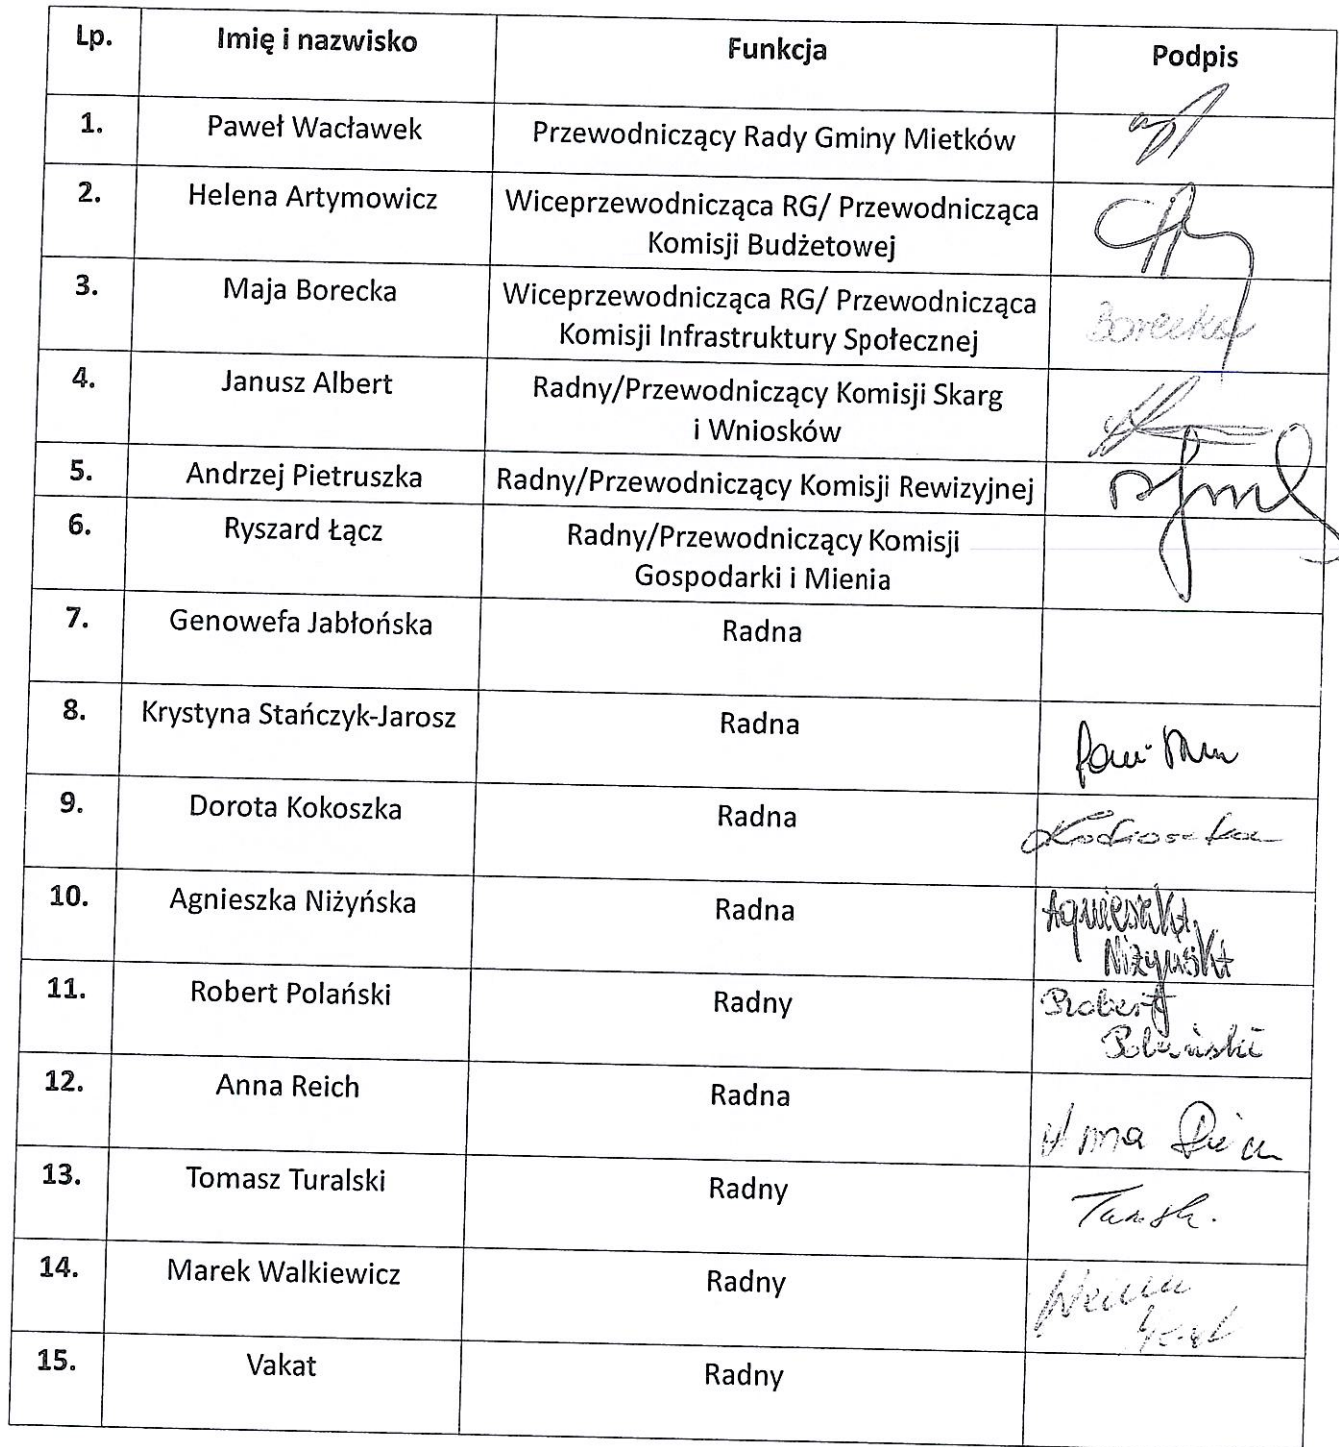 Lp. Imię i nazwisko Funkcja Podpis
1. Paweł Wacławek Przewodniczący Rady Gminy Mietków
2. Helena Artymowicz Wiceprzewodnicząca RG/ Przewodnicząca
Komisji Budżetowej
3. Maja Borecka Wiceprzewodnicząca RG/ Przewodnicząca
Komisji Infrastruktury Społecznej
Borecka
4. Janusz Albert Radny/Przewodniczący Komisji Skarg
i Wniosków
5. Andrzej Pietruszka Radny/Przewodniczący Komisji Rewizyjnej
6. Ryszard Łącz Radny/Przewodniczący Komisji
Gospodarki i Mienia
7. Genowefa Jabłońska Radna
8. Krystyna Stańczyk-Jarosz Radna
9. Dorota Kokoszka Radna Kokoszka
10. Agnieszka Niżyńska Radna Agnieszka
Niżyńska
11. Robert Polański Radny Robert
Polański
12. Anna Reich Radna Anna
13. Tomasz Turalski Radny
14. Marek Walkiewicz Radny
15. Vakat Radny